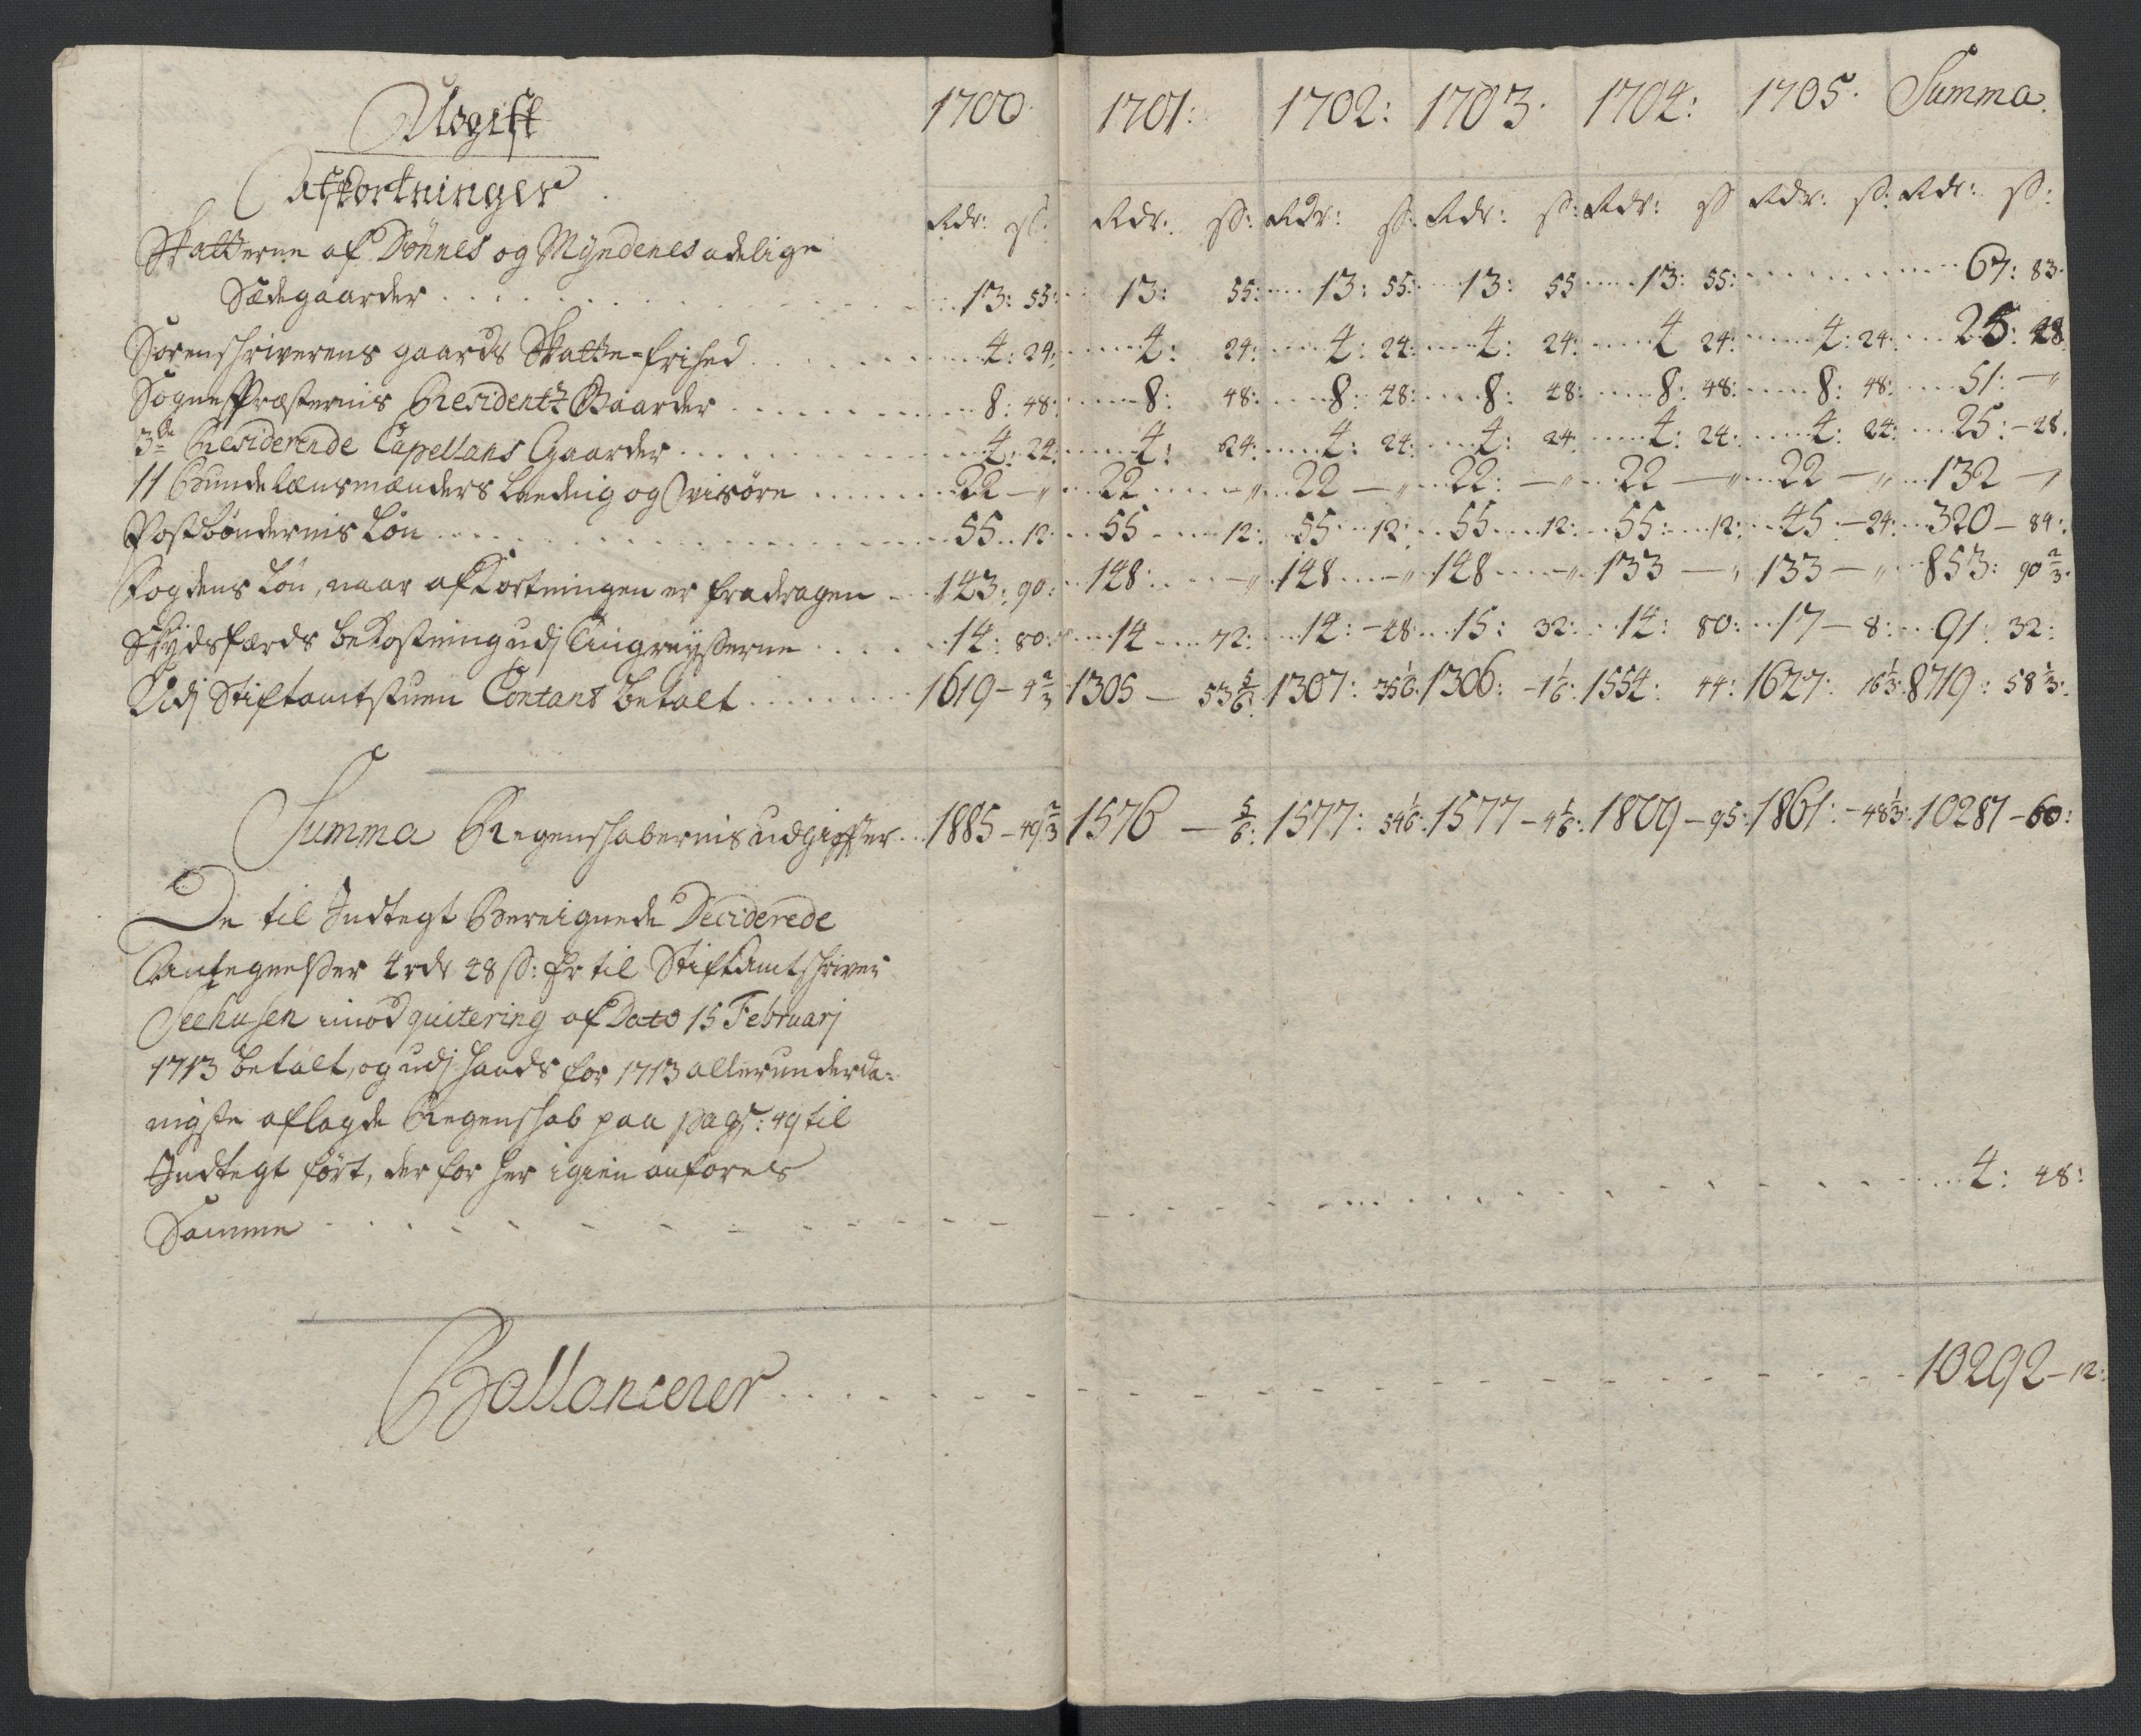 Udgift 1700. 1701: 1702: 1703. 1704: 1705. Summa.
Afkortninger
Rdr: ß: Rdr: ß: Rdr: ß: Rdr: ß: Rdr: ß Rdr: ß: Rdr: ß:
Skatterne af Dönnes og Myndenes adelige
Sædegaarder 13: 55: 13: 55: 13: 55: 13: 55 13: 55: 67: 83.
Sorenschriverens gaards Skatte-frihed 4: 24: 4: 24: 4: 24: 4: 24: 4 24: 4: 24: 25: 48
Sogne Præsternis Residentz Gaarder 8: 48: 8: 48: 8: 48: 8: 48: 8: 48: 8: 48: 51: — "
3de Residerende Capellans Gaarder 4: 24: 4: 24: 4: 24: 4: 24 4: 24: 4: 24: 25: – 48.
11 Bundelænsmænders Leednig og Wisöre 22 — " 22 — " 22 — " 22: — " 22 — " 22 — " 132 — "
Postböndernis Lön 55 12: 55 12: 55 12: 55 12: 55: 12: 45: – 24: 320 – 84:
Fogdens Lön, naar afKortningen er fradragen 143: 90: 148: — " 148 — " 148 — " 133 — " 133 — " 853: 90 2/3:
Skydsfærds beKostning udj Tingreyßerne 14: 80: 14 72: 14: – 48: 15: 32: 14: 80: 17 – 8: 91: 32:
Udj Stiftamtstuen Contant betalt 1619 – 4 2/3 1305 — 53 5/6: 1307: 35 1/6: 1306: – 1 1/6: 1554: 44: 1627: 16 1/3: 8719: 58 2/3:
Summa Regenschabernis udgiffter 1885 – 49 2/3 1576 — 5/6: 1577: 54 1/6: 1577 – 4 1/6: 1809 – 95: 1861: – 48 1/3: 10287 – 60:
De til Indtegt Bereignede Deciderede
Antegnelßer 4 rdr 48 ß: Er til Stiftamtschriver
Seehusen imod quitering af Dato 15 Februarj
1713 betalt, og udj hands for 1713 allerunderda=
nigste aflagde Regenschab paa pag: 49 til
Indtegt fört, der for her igien anföres
Samme 4: 48:
Ballancerer 10292 – 12: